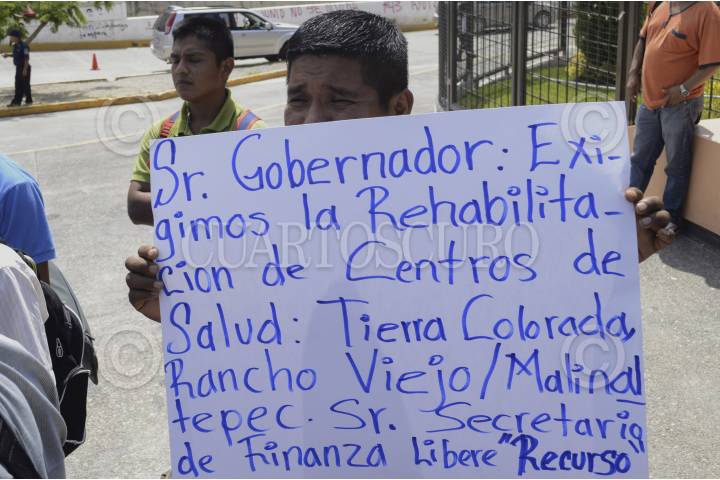 Sr. Gobernador: Exi-
gimos la Rehabilita-
cion de Centros de
Salud: Tierra Colorada,
Rancho Viejo/Malinal
tepec. Sr. Secretario
de Finanza Libere "Recurso"
CUARTOSCURO